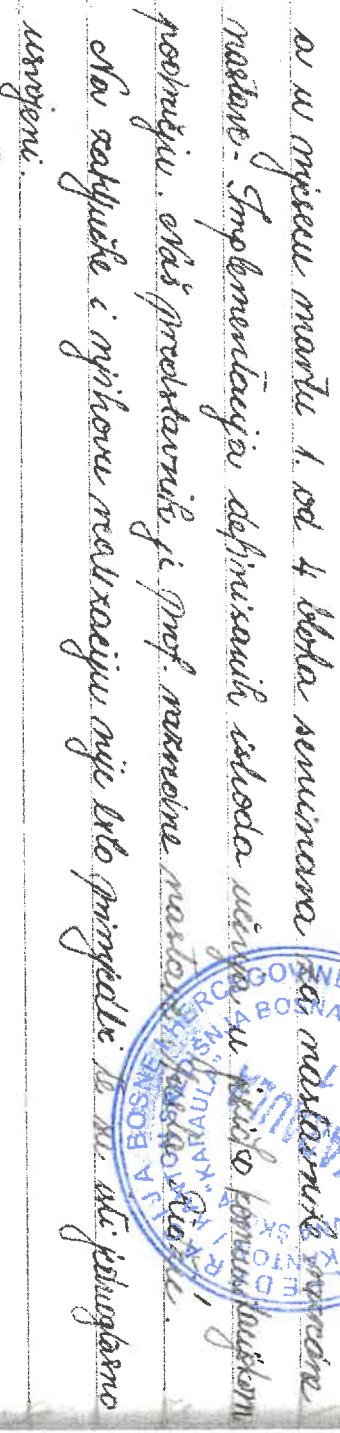 a u mjesecu martu 1. od 4 bloka seminara za nastavnike razredne
nastave - Implementacija definisanih ishoda učenja u jezičko komunikacijskom
području. Naš predstavnik je prof. razredne nastave
Na zaključke i njihovu realizaciju nije bilo primjedbi te su isti jednoglasno
usvojeni.
BOSNE I HERCEGOVINE
"KARAULA"